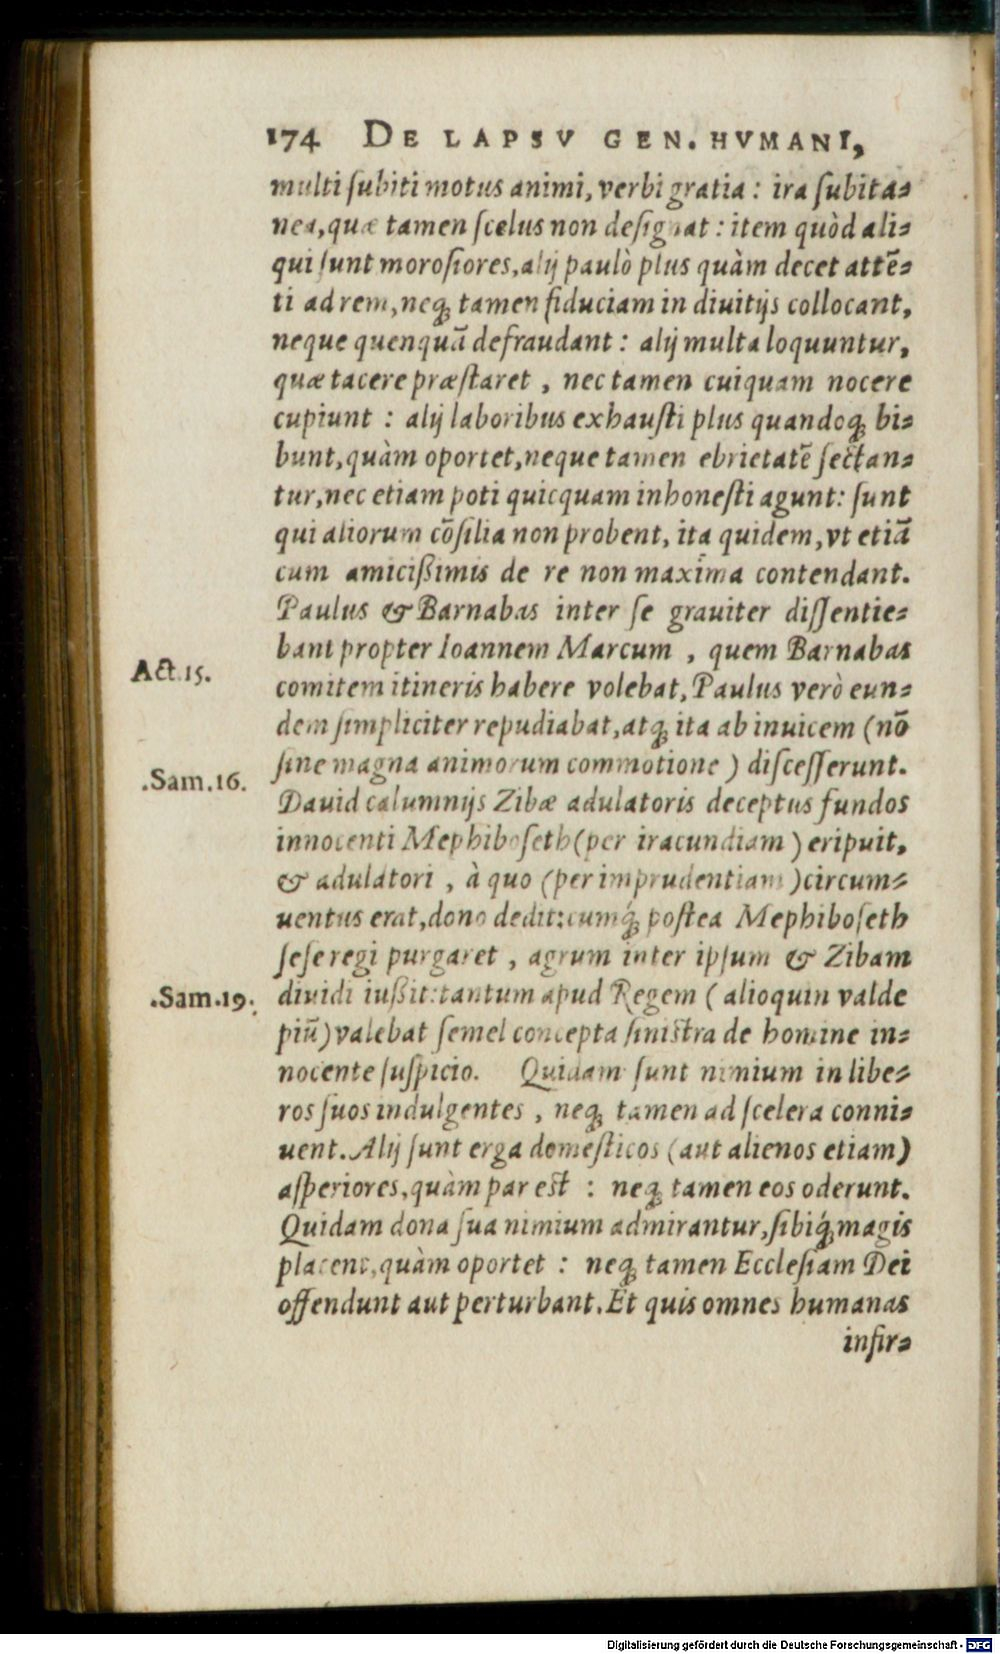 174 DE LAPSV GEN. HVMANI,
multi ſubiti motus animi, verbi gratia : ira ſubita-
nea, quæ tamen ſcelus non deſignat : item quòd ali-
qui ſunt moroſiores, alij paulò plus quàm decet attē-
ti ad rem, neq́; tamen fiduciam in diuitijs collocant,
neque quenquā defraudant : alij multa loquuntur,
quæ tacere præſtaret , nec tamen cuiquam nocere
cupiunt : alij laboribus exhauſti plus quandoq́; bi-
bunt, quàm oportet, neque tamen ebrietatē ſectan-
tur, nec etiam poti quicquam inhoneſti agunt: ſunt
qui aliorum cōſilia non probent, ita quidem, vt etiā
cum amicißimis de re non maxima contendant.
Paulus & Barnabas inter ſe grauiter diſſentie-
bant propter Ioannem Marcum , quem Barnabas
Act.15.
comitem itineris habere volebat, Paulus verò eun-
dem ſimpliciter repudiabat, atq́; ita ab inuicem (nō
ſine magna animorum commotione ) diſceſſerunt.
.Sam.16.
Dauid calumnijs Zibæ adulatoris deceptus fundos
innocenti Mephiboſeth (per iracundiam ) eripuit,
& adulatori , à quo (per imprudentiam ) circum-
uentus erat, dono dedit: cumq́; poſtea Mephiboſeth
ſeſe regi purgaret , agrum inter ipſum & Zibam
.Sam.19.
diuidi iußit: tantum apud Regem ( alioquin valde
piū) valebat ſemel concepta ſiniſtra de homine in-
nocente ſuſpicio. Quidam ſunt nimium in libe-
ros ſuos indulgentes , neq́; tamen ad ſcelera conni-
uent. Alij ſunt erga domeſticos (aut alienos etiam)
aſperiores, quàm par eſt : neq́; tamen eos oderunt.
Quidam dona ſua nimium admirantur, ſibiq́; magis
placent, quàm oportet : neq́; tamen Eccleſiam Dei
offendunt aut perturbant. Et quis omnes humanas
infir-
Digitalisierung gefördert durch die Deutsche Forschungsgemeinschaft - DFG